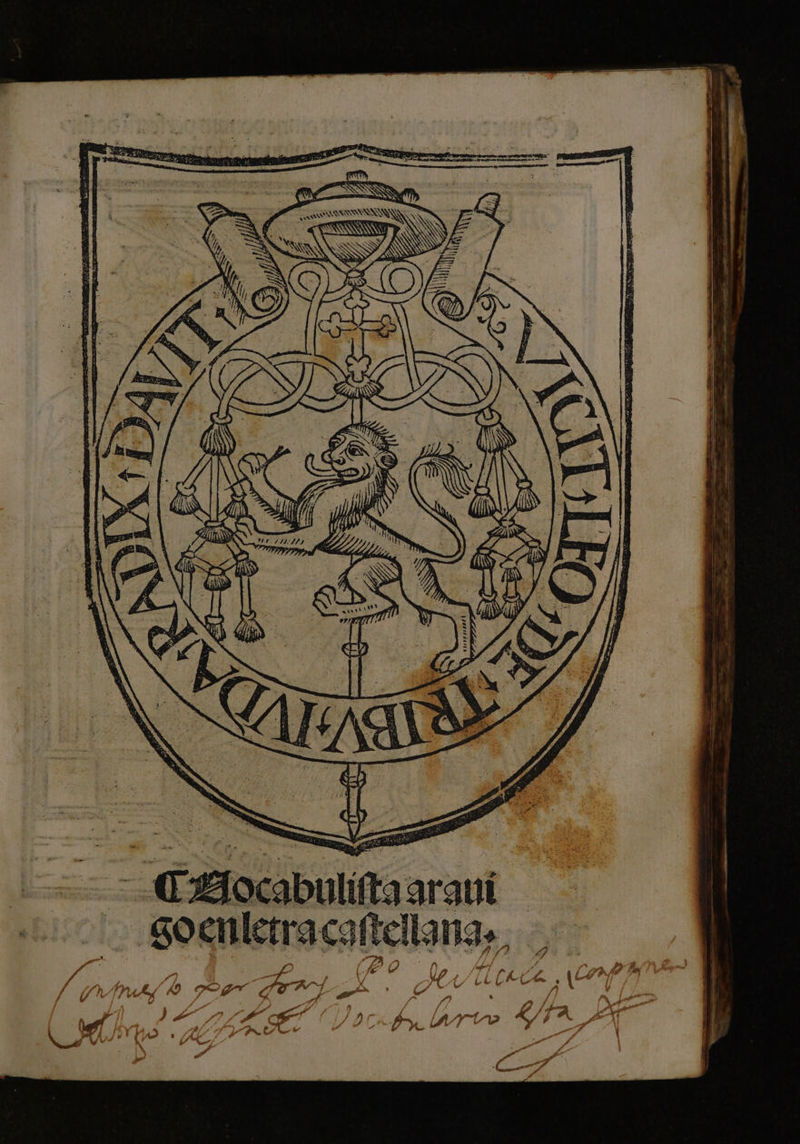 VICIT LEO DE TRIBV IVDA RADIX DAVIT
Vocabulista araui
go en letra castellana.
Compuesto por fray P.º de Alcala,
al fin del Vocabulario esta